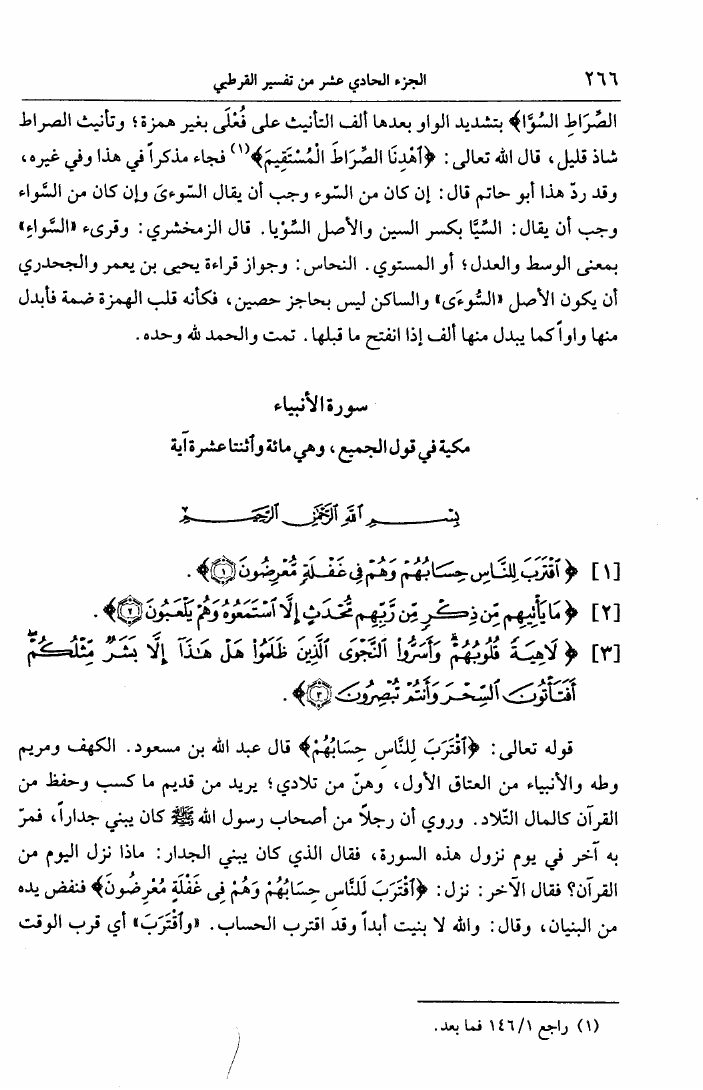 ٢٦٦ الجزء الحادي عشر من تفسير القرطبي
الصِّرَاطِ السُوَّا﴾ بتشديد الواو بعدها ألف التأنيث على فُعْلَى بغير همزة؛ وتأنيث الصراط
شاذ قليل، قال الله تعالى: ﴿ٱهْدِنَا الصِّرَاطَ الْمُسْتَقِيمَ﴾(١) فجاء مذكراً في هذا وفي غيره،
وقد ردّ هذا أبو حاتم قال: إن كان من السّوء وجب أن يقال السّوءى وإن كان من السَّواء
وجب أن يقال: السِّيَّا بكسر السين والأصل السِّوْيا. قال الزمخشري: وقرىء «السَّواءِ»
بمعنى الوسط والعدل؛ أو المستوي. النحاس: وجواز قراءة يحيى بن يعمر والجحدري
أن يكون الأصل «السُّوءَى» والساكن ليس بحاجز حصين، فكأنه قلب الهمزة ضمة فأبدل
منها واواً كما يبدل منها ألف إذا انفتح ما قبلها. تمت والحمد لله وحده.
سورة الأنبياء
مكية في قول الجميع، وهي مائة وٱثنتا عشرة آية
بِسْمِ ٱللَّهِ ٱلرَّحْمَٰنِ ٱلرَّحِيمِ
[١] ﴿ ٱقْتَرَبَ لِلنَّاسِ حِسَابُهُمْ وَهُمْ فِى غَفْلَةٍ مُّعْرِضُونَ ١﴾.
[٢] ﴿ مَا يَأْتِيهِم مِّن ذِكْرٍ مِّن رَّبِّهِم مُّحْدَثٍ إِلَّا ٱسْتَمَعُوهُ وَهُمْ يَلْعَبُونَ ٢﴾.
[٣] ﴿ لَاهِيَةً قُلُوبُهُمْ وَأَسَرُّوا۟ ٱلنَّجْوَى ٱلَّذِينَ ظَلَمُوا۟ هَلْ هَٰذَآ إِلَّا بَشَرٌ مِّثْلُكُمْ
أَفَتَأْتُونَ ٱلسِّحْرَ وَأَنتُمْ تُبْصِرُونَ ٣﴾.
قوله تعالى: ﴿ٱقْتَرَبَ لِلنَّاسِ حِسَابُهُمْ﴾ قال عبد الله بن مسعود. الكهف ومريم
وطه والأنبياء من العتاق الأول، وهنّ من تلادي؛ يريد من قديم ما كسب وحفظ من
القرآن كالمال التّلاد. وروي أن رجلاً من أصحاب رسول الله ﷺ كان يبني جداراً، فمرّ
به آخر في يوم نزول هذه السورة، فقال الذي كان يبني الجدار: ماذا نزل اليوم من
القرآن؟ فقال الآخر: نزل: ﴿ٱقْتَرَبَ لِلنَّاسِ حِسَابُهُمْ وَهُمْ فِى غَفْلَةٍ مُعْرِضُونَ﴾ فنفض يده
من البنيان، وقال: والله لا بنيت أبداً وقد اقترب الحساب. «وٱقْتَرَبَ» أي قرب الوقت
(١) راجع ١/١٤٦ فما بعد.